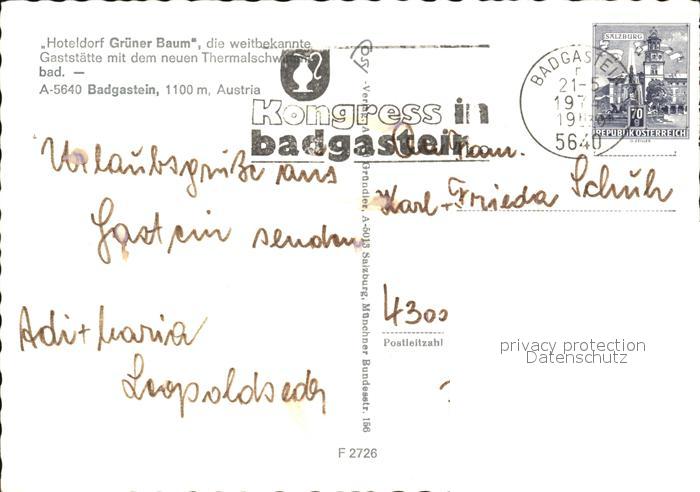 „Hoteldorf Grüner Baum“, die weitbekannte
Gaststätte mit dem neuen Thermalschwimm-
bad. —
A-5640 Badgastein, 1100 m, Austria
Kongress in
badgastein
BADGASTEIN
21-5
5640
SALZBURG
70
REPUBLIK ÖSTERREICH
Urlaubsgrüße aus
Gastein senden
Adi + Maria
Fam.
Karl + Frieda Schuh
4300
Postleitzahl
Gründler, A-5013 Salzburg, Münchner Bundesstr. 156
privacy protection
Datenschutz
F 2726